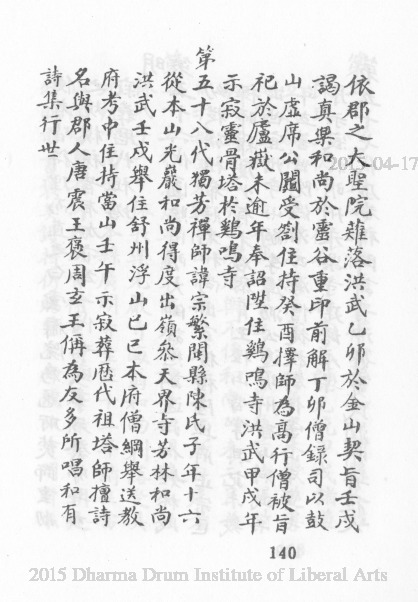 依郡之大聖院薙落洪武乙卯於金山契旨壬戌
謁真樂和尚於靈谷重印前解丁卯僧錄司以鼓
山虛席公圖受劄住持癸酉擇師為高行僧被旨
祀於廬嶽未逾年奉詔陞住鷄鳴寺洪武甲戌年
示寂靈骨塔於鷄鳴寺
第五十八代獨芳禪師諱宗繁閩縣陳氏子年十六
從本山光巖和尚得度出嶺叅天界寺芳林和尚
洪武壬戌舉住舒州浮山己巳本府僧綱舉送教
府考中住持當山壬午示寂葬歷代祖塔師擅詩
名與郡人唐震王褒周玄王偁為友多所唱和有
詩集行世
140
2015 Dharma Drum Institute of Liberal Arts